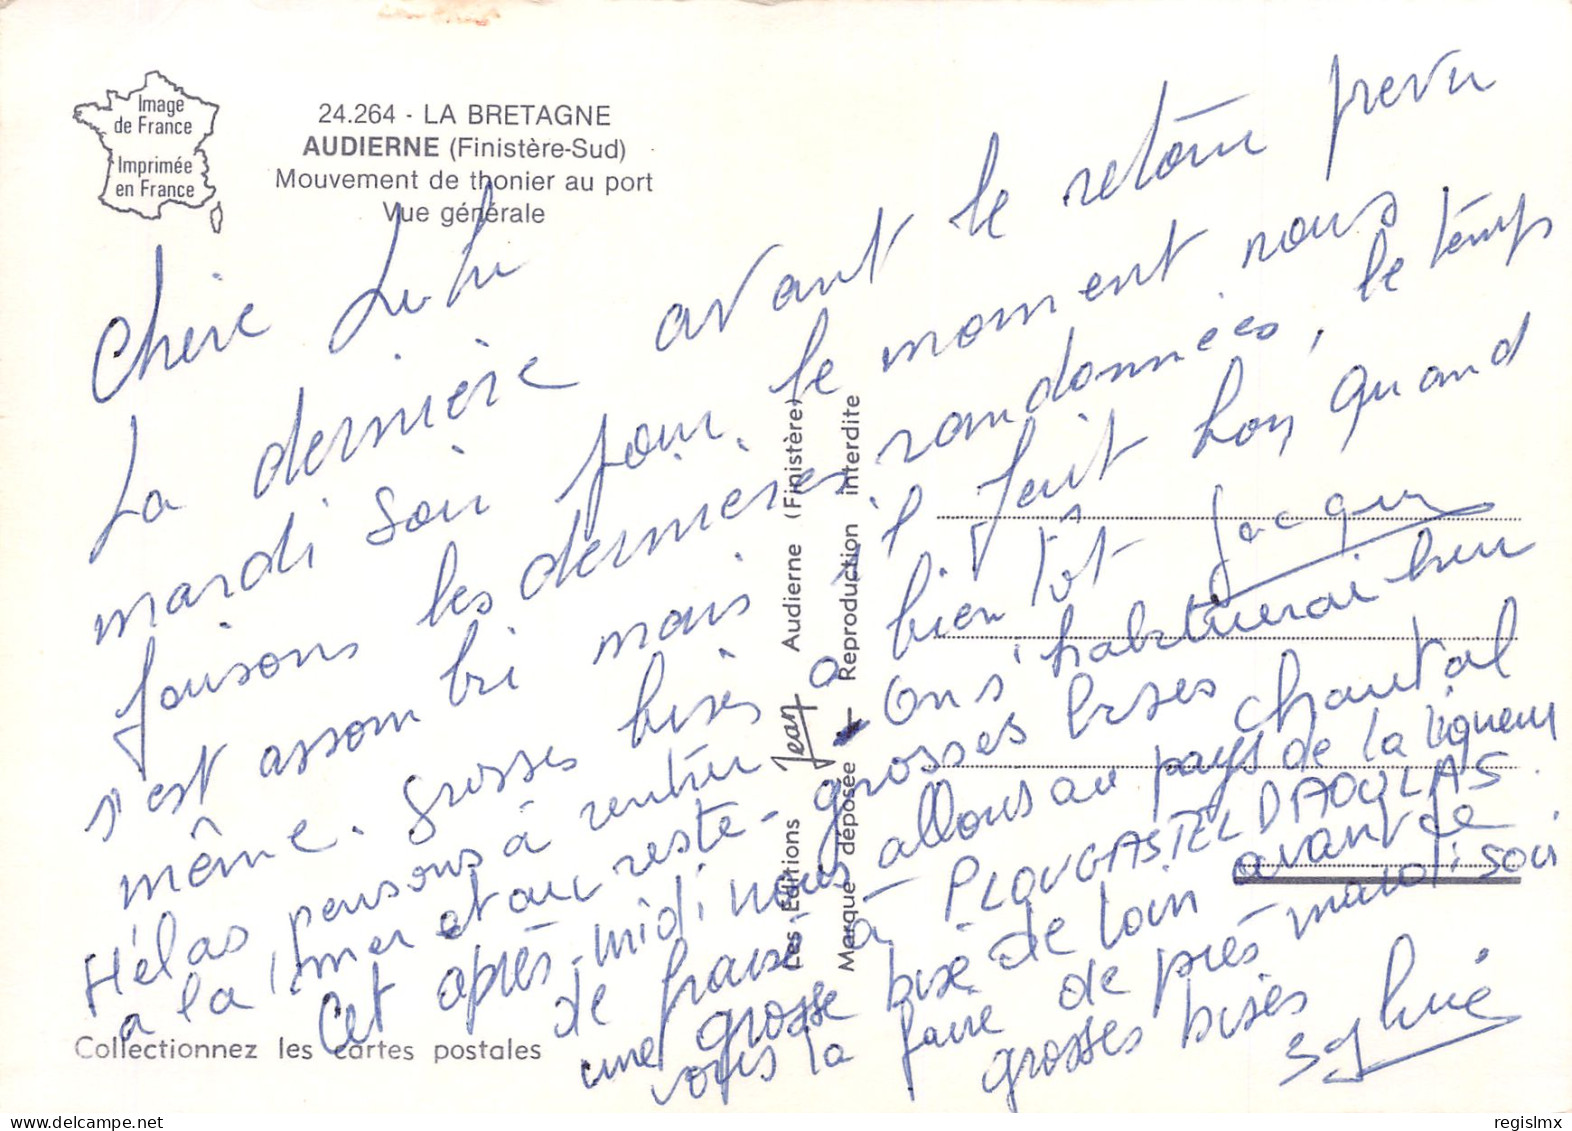 Image
de France
Imprimée
en France
24.264 - LA BRETAGNE
AUDIERNE (Finistère-Sud)
Mouvement de thonier au port
Vue générale
Chère
La dernière avant le retour prevu
mardi soir pour le moment nous
faisons les dernières randonnées, le temps
s'est assombri mais il fait bon, quand
même. grosses bises a bientôt Jacques
Hélas pensons à rentrer - On s'habituerai bien
a la mer et au reste - grosses bises Chantal
Cet après-midi nous allons au pays de la liqueur
de fraise à PLOUGASTEL DAOULAS
une grosse bise de loin avant de
vous la faire de près mardi soir.
grosses bises
Sylvie
Les Editions Jean Audierne (Finistère)
Marque déposée - Reproduction interdite
Collectionnez les cartes postales
regislmx